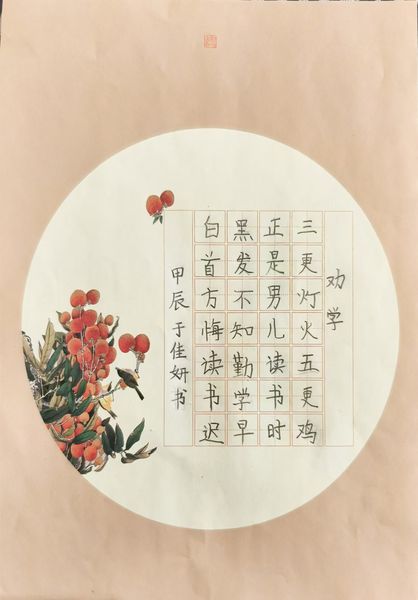 劝学
三更灯火五更鸡
正是男儿读书时
黑发不知勤学早
白首方悔读书迟
甲辰于佳妍书